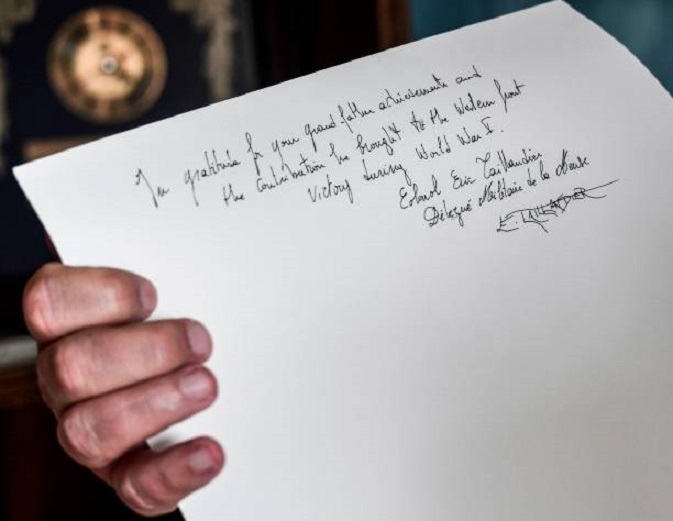 In gratitude for your grand father achievements and
the Contribution he brought to the Western front
Victory during World War I.
Colonel Eric Taillandier
Délégué Militaire de la Meuse
E. TAILLANDIER